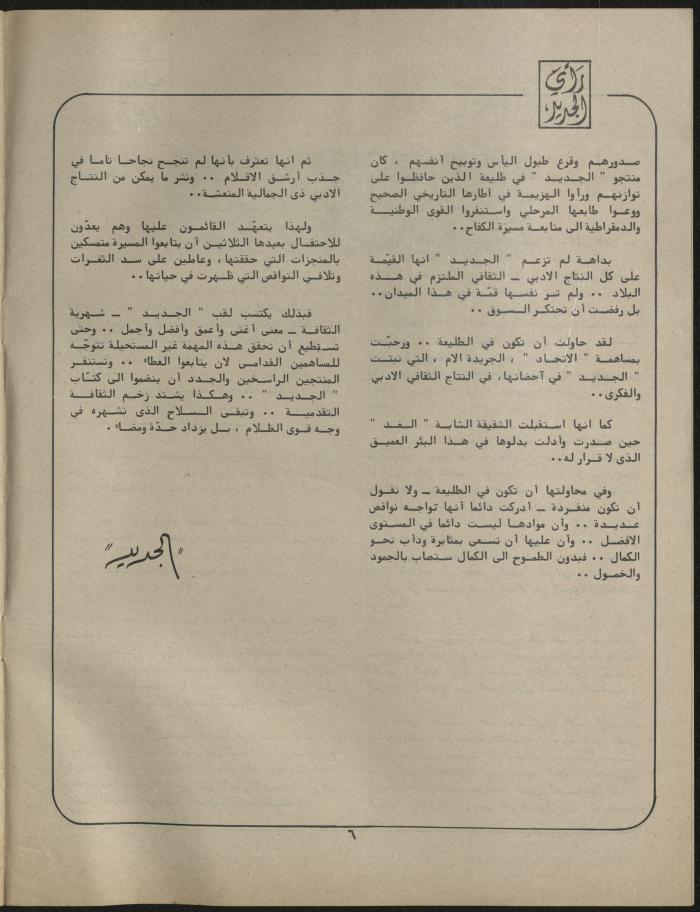 رأي
الجديد
صدورهم وقرع طبول اليأس وتوبيخ أنفسهم ، كان
منتجو " الجديد " في طليعة الذين حافظوا على
توازنهم ورأوا الهزيمة في اطارها التاريخي الصحيح
ووعوا طابعها المرحلي واستنفروا القوى الوطنية
والدمقراطية الى متابعة مسيرة الكفاح..
بداهة لم تزعم " الجديد " انها القيّمة
على كل النتاج الادبي ــ الثقافي الملتزم في هذه
البلاد .. ولم تر نفسها قمّة في هذا الميدان..
بل رفضت أن تحتكر السوق ..
لقد حاولت أن تكون في الطليعة .. ورحبّت
بمساهمة " الاتحاد " ، الجريدة الام ، التي نبتت
" الجديد " في آحضانها، في النتاج الثقافي الادبي
والفكرى..
كما انها استقبلت الشقيقة الشابة " الغد "
حين صدرت وأدلت بدلوها في هذا البئر العميق
الذى لا قرار له..
وفي محاولتها أن تكون في الطليعة ــ ولا نقول
أن تكون منفردة ــ أدركت دائما أنها تواجه نواقص
عديدة .. وأن موادها ليست دائما في المستوى
الافضل .. وأن عليها أن تسعى بمثابرة ودأب نحو
الكمال .. فبدون الطموح الى الكمال ستصاب بالجمود
والخمول ..
ثم انها تعترف بأنها لم تنجح نجاحا تاما في
جذب أرشق الاقلام .. ونشر ما يمكن من النتاج
الادبي ذى الجمالية المنعشة..
ولهذا يتعهّد القائمون عليها وهم يعدّون
للاحتفال بعيدها الثلاثين أن يتابعوا المسيرة متمسكين
بالمنجزات التي حققتها، وعاملين على سد الثغرات
وتلافي النواقص التي ظهرت في حياتها..
فبذلك يكتسب لقب " الجديد " ــ شهرية
الثقافة ــ معنى أغنى وأعمق وأفضل وأجمل .. وحتى
تستطيع أن تحقق هذه المهمة غير المستحيلة تتوجّه
للمساهمين القدامى لان يتابعوا العطاء .. وتستنفر
المنتجين الراسخين والجدد أن ينضموا الى كتّاب
" الجديد " .. وهكذا يشتد زخم الثقافة
التقدمية .. وتبقى السلاح الذى نشهره في
وجه قوى الظلام ، بل يزداد حدّة ومضاء .
"الجديد"
٦